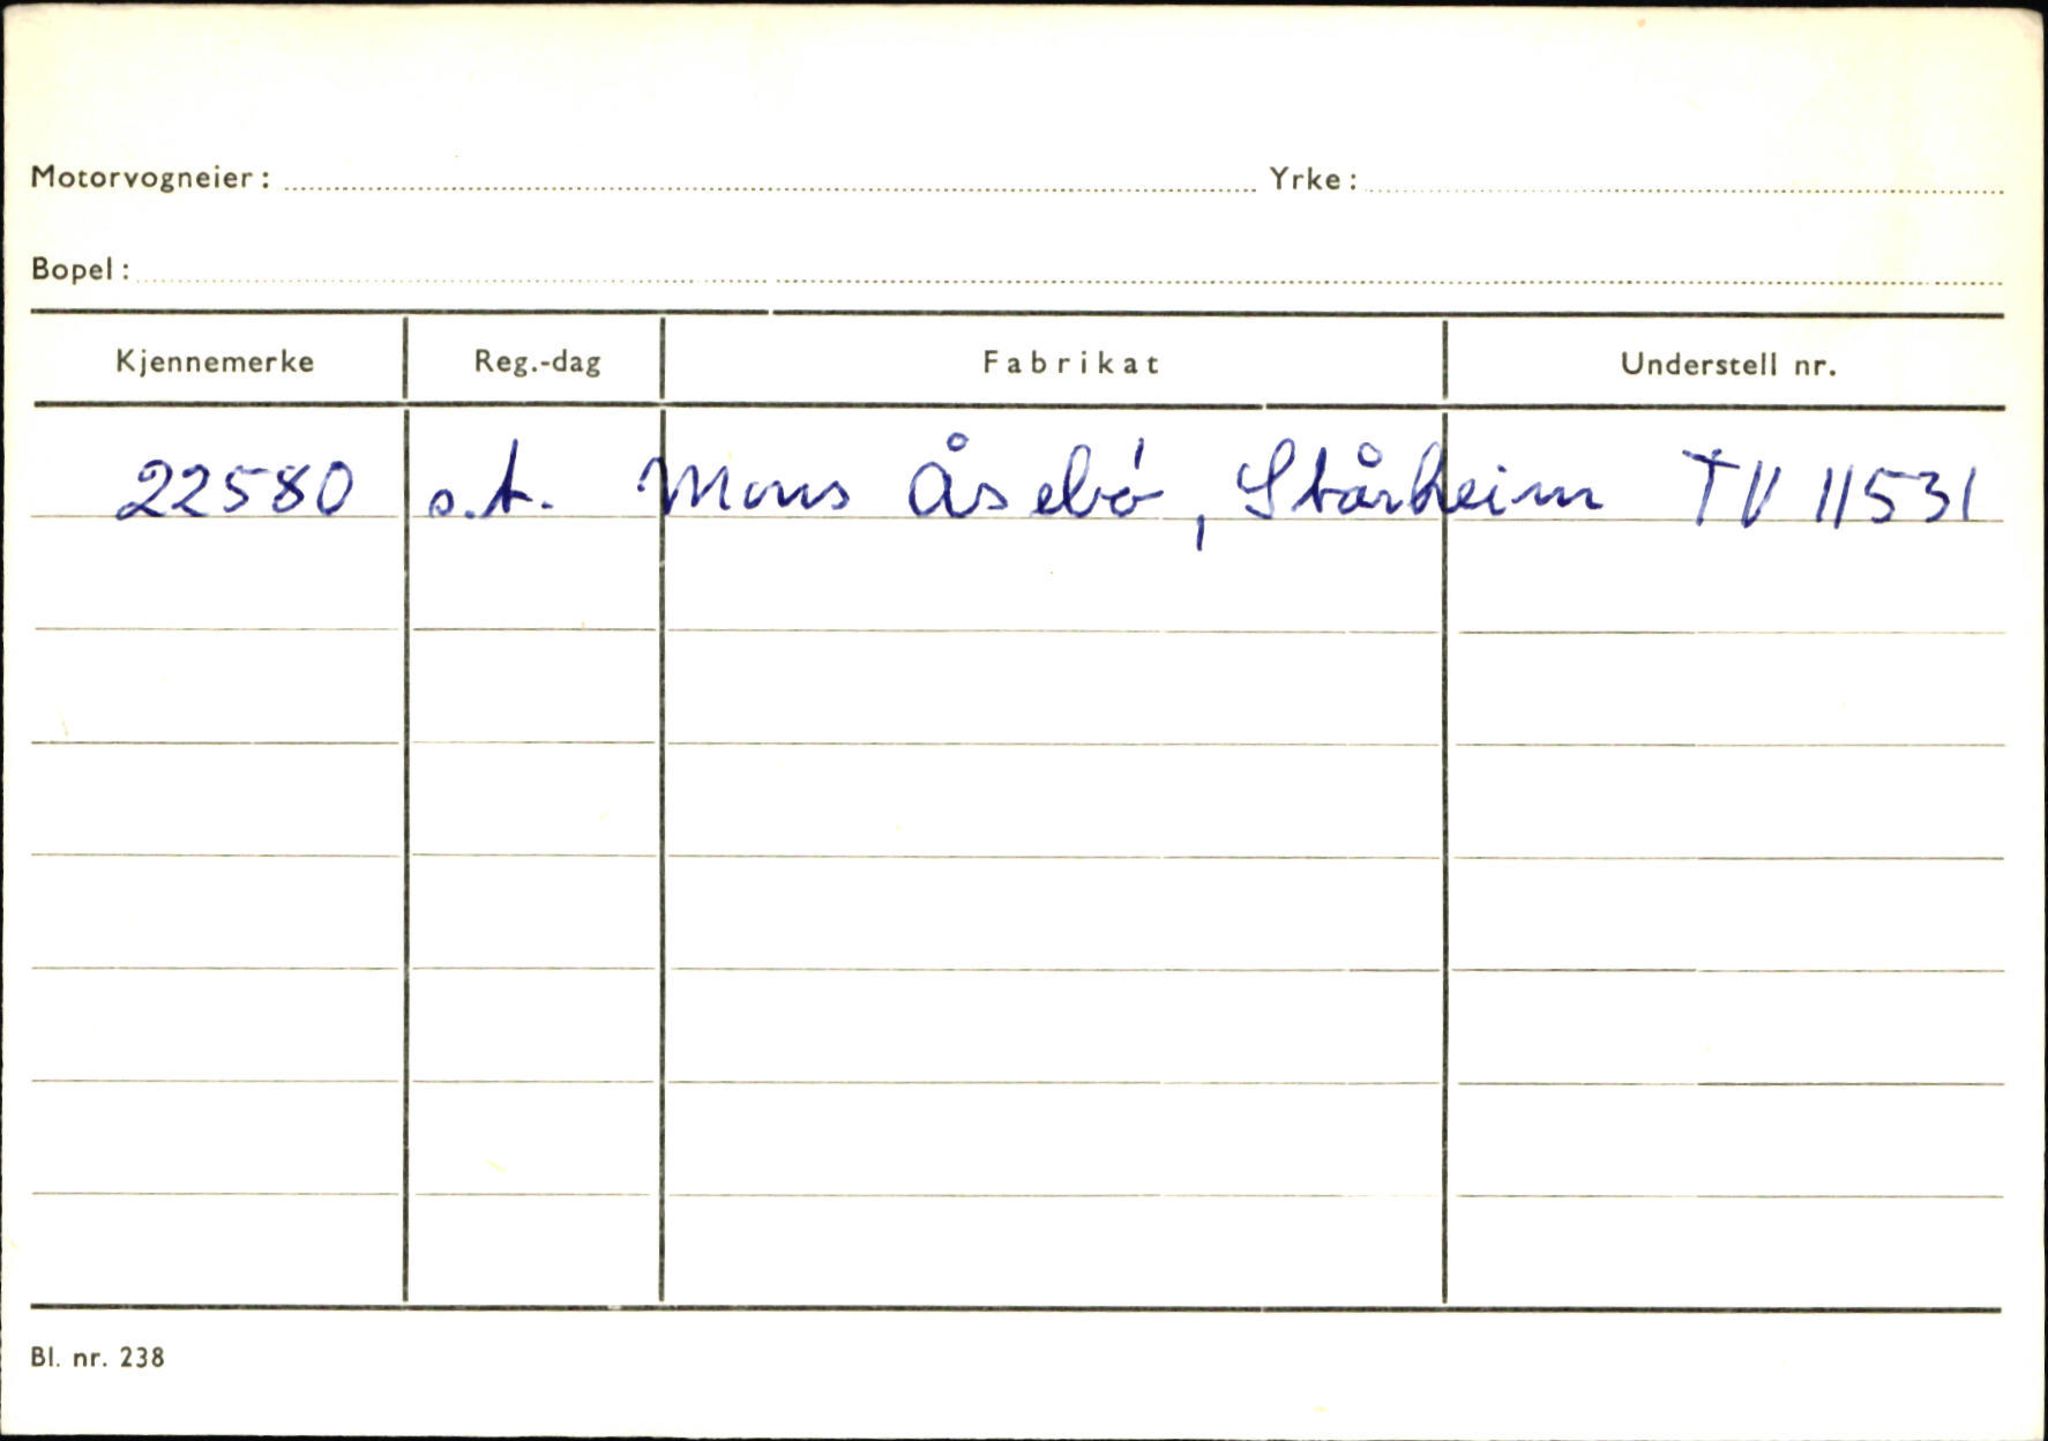 Motorvogneier: Yrke:
Bopel:
Kjennemerke Reg.-dag Fabrikat Understell nr.
22580 o.t. Mons Åsebö, Stårheim TV 11531
Bl. nr. 238